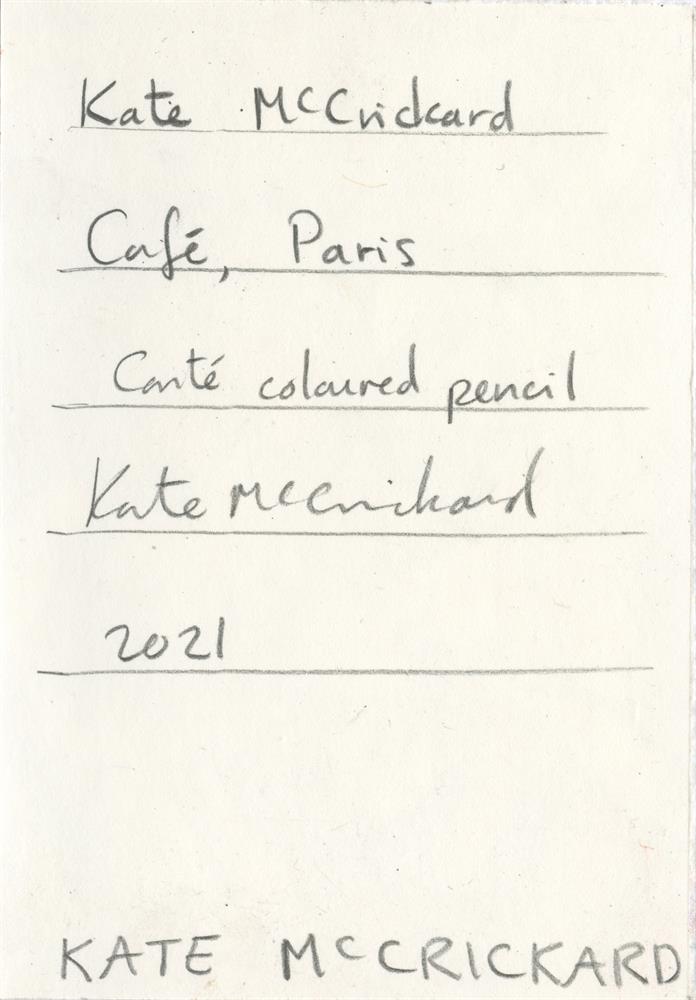 Kate McCrickard
Café, Paris
Conté coloured pencil
Kate McCrickard
2021
KATE McCRICKARD